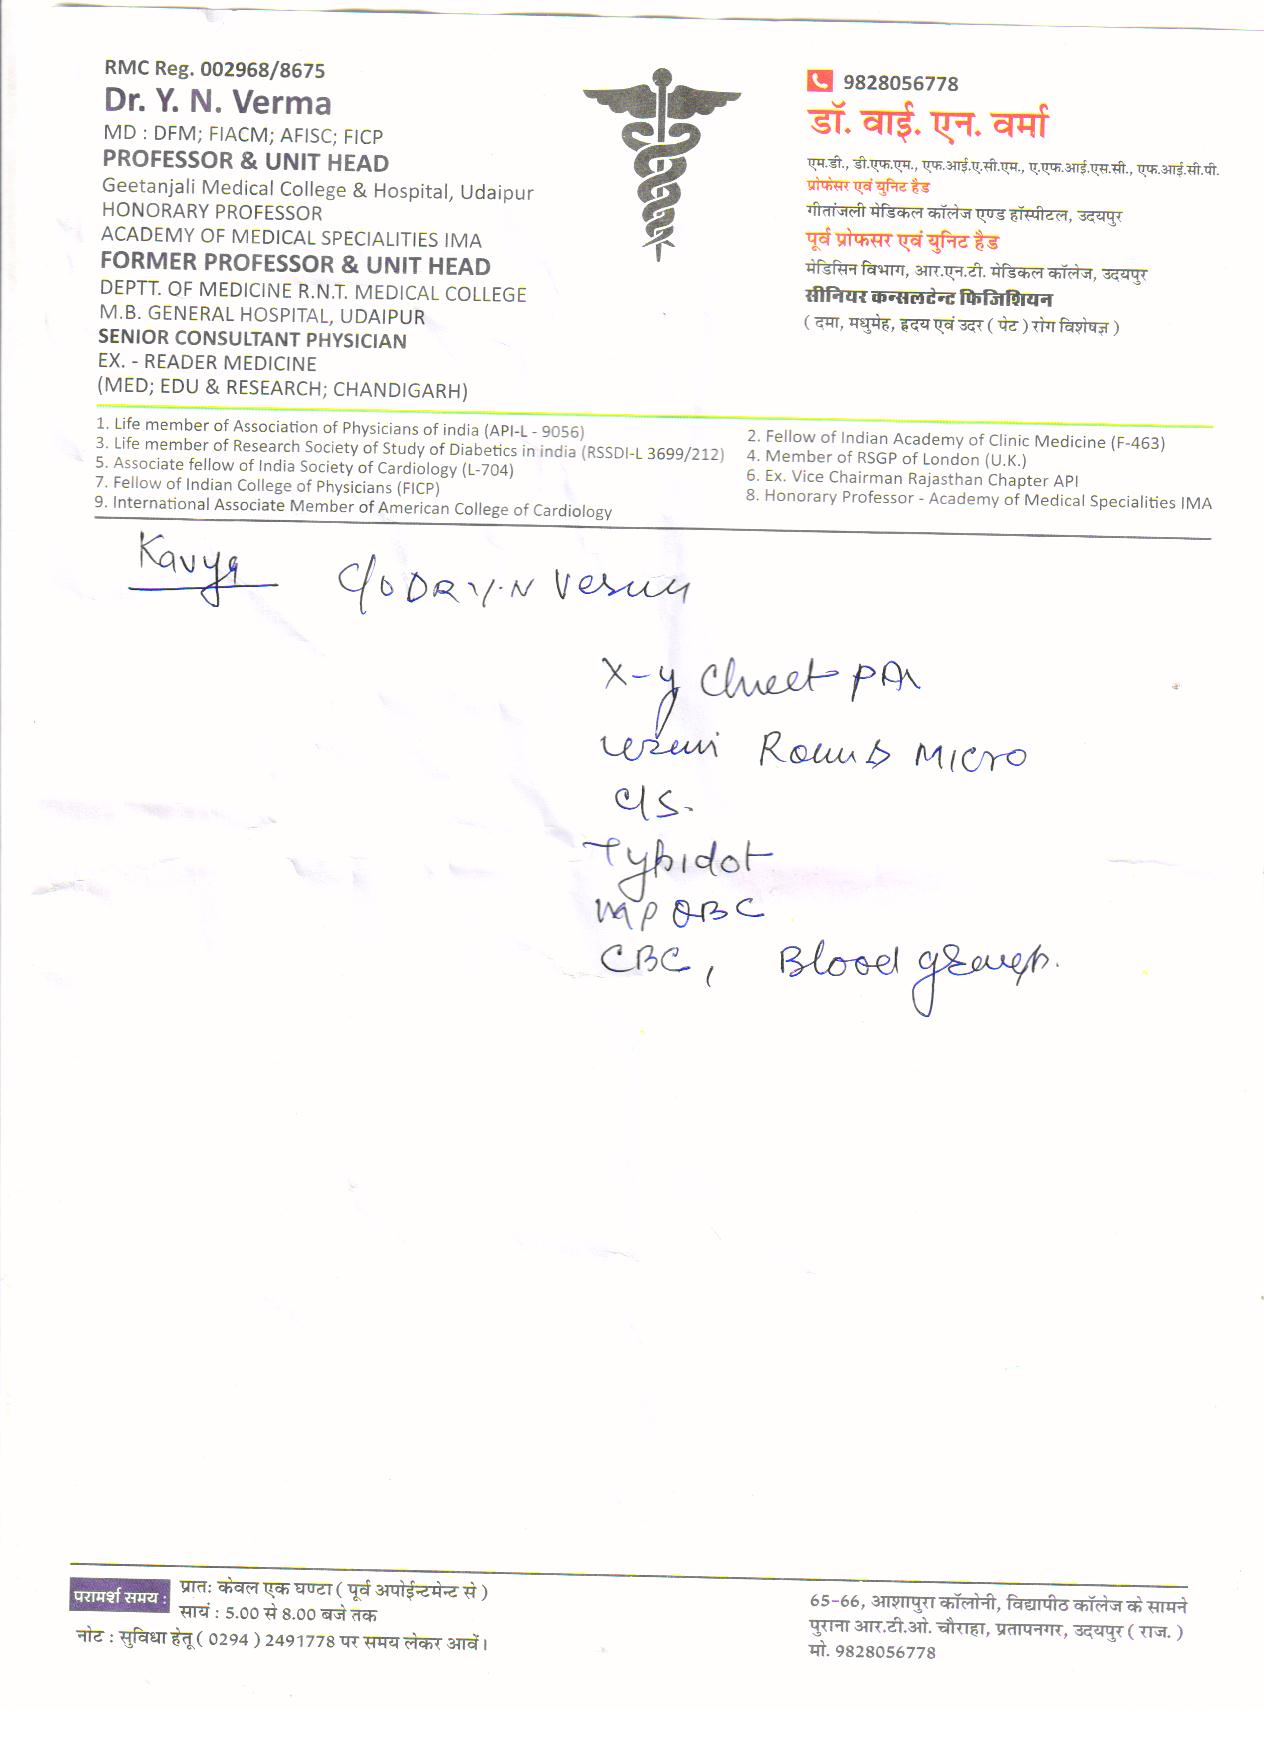 RMC Reg. 002968/8675
Dr. Y. N. Verma
MD : DFM; FIACM; AFISC; FICP
PROFESSOR & UNIT HEAD
Geetanjali Medical College & Hospital, Udaipur
HONORARY PROFESSOR
ACADEMY OF MEDICAL SPECIALITIES IMA
FORMER PROFESSOR & UNIT HEAD
DEPTT. OF MEDICINE R.N.T. MEDICAL COLLEGE
M.B. GENERAL HOSPITAL, UDAIPUR
SENIOR CONSULTANT PHYSICIAN
EX. - READER MEDICINE
(MED; EDU & RESEARCH; CHANDIGARH)
9828056778
डॉ. वाई. एन. वर्मा
एम.डी., डी.एफ.एम., एफ.आई.ए.सी.एम., ए.एफ.आई.एस.सी., एफ.आई.सी.पी.
प्रोफेसर एवं युनिट हैड
गीतांजली मेडिकल कॉलेज एण्ड हॉस्पीटल, उदयपुर
पूर्व प्रोफसर एवं युनिट हैड
मेडिसिन विभाग, आर.एन.टी. मेडिकल कॉलेज, उदयपुर
सीनियर कन्सलटेन्ट फिजिशियन
( दमा, मधुमेह, हृदय एवं उदर ( पेट ) रोग विशेषज्ञ )
1. Life member of Association of Physicians of india (API-L - 9056)
2. Fellow of Indian Academy of Clinic Medicine (F-463)
3. Life member of Research Society of Study of Diabetics in india (RSSDI-L 3699/212)
4. Member of RSGP of London (U.K.)
5. Associate fellow of India Society of Cardiology (L-704)
6. Ex. Vice Chairman Rajasthan Chapter API
7. Fellow of Indian College of Physicians (FICP)
8. Honorary Professor - Academy of Medical Specialities IMA
9. International Associate Member of American College of Cardiology
Kavya C/o DR Y.N Verma
X-y Chest PA
MICRO
C/S.
Typidot
MP QBC
CBC, Blood group.
परामर्श समय :
प्रातः केवल एक घण्टा ( पूर्व अपोईन्टमेन्ट से )
सायं : 5.00 से 8.00 बजे तक
नोट : सुविधा हेतू ( 0294 ) 2491778 पर समय लेकर आवें।
65-66, आशापुरा कॉलोनी, विद्यापीठ कॉलेज के सामने
पुराना आर.टी.ओ. चौराहा, प्रतापनगर, उदयपुर ( राज. )
मो. 9828056778